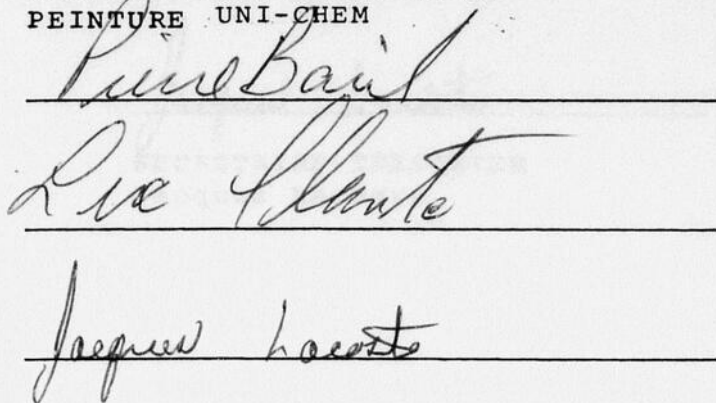 PEINTURE UNI-CHEM
Pierre Baril
Luc Plante
Jacques Lacoste